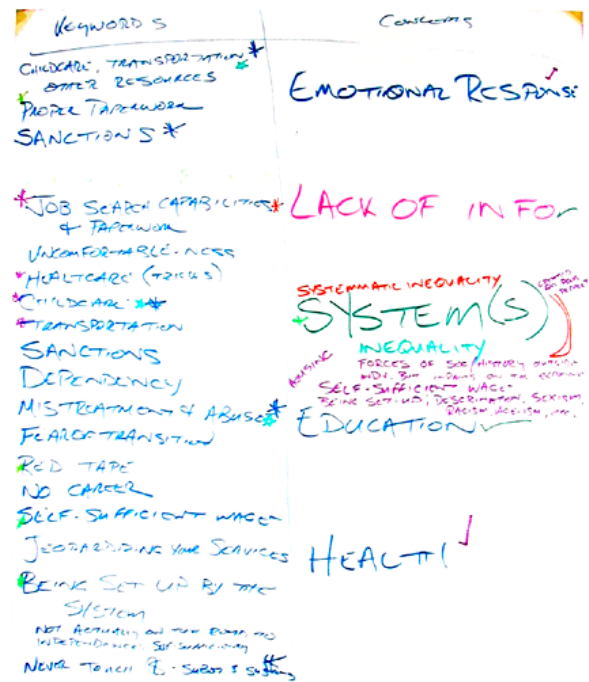 KEYWORDS
CHILDCARE, TRANSPORTATION
OTHER RESOURCES
PROPER PAPERWORK
SANCTIONS
JOB SEARCH CAPABILITIES
& PAPERWORK
UNCOMFORTABLE-NESS
HEALTCARE (TRICKS)
CHILDCARE
TRANSPORTATION
SANCTIONS
DEPENDENCY
MISTREATMENT & ABUSE
FEAR OF TRANSITION
RED TAPE
NO CAREER
SELF-SUFFICIENT WAGE
JEOPARDIZING YOUR SERVICES
BEING SET UP BY THE
SYSTEM
NOT ACTUALLY ON THE ROAD TO
INDEPENDANCE, SELF-SUFFICIENCY
NEVER TOUCH
CONCERNS
EMOTIONAL RESPONSE
LACK OF INFO
SYSTEMMATIC INEQUALITY
SYSTEM(S)
INEQUALITY
FORCES OF SOC/HISTORY OUTSIDE
INDIV. BUT
SELF-SUFFICIENT WAGE
BEING SET-UP, DESCRIMATION, SEXISM,
RACISM, AGEISM,
EDUCATION
HEALTH